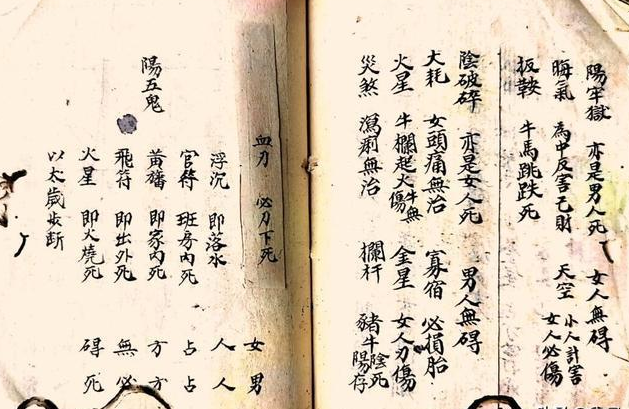 陽牢獄 亦是男人死 女人無碍
晦氣 為中反害己財 天空 小人計害 女人必傷
扳鞍 牛馬跳跌死
陰破碎 亦是女人死 男人無碍
大耗 女頭痛無治 寡宿 必損胎
火星 牛欄起火牛無傷 金星 女人刃傷
災煞 瀉痢無治 欄杆 豬牛陰死陽存
陽五鬼
血刃 必刀下死
浮沉 即落水
官符 班房內死
黃旛 即家內死
飛符 即出外死
火星 即火燒死
以太歲收斷
女人占方無碍
男人占方必死